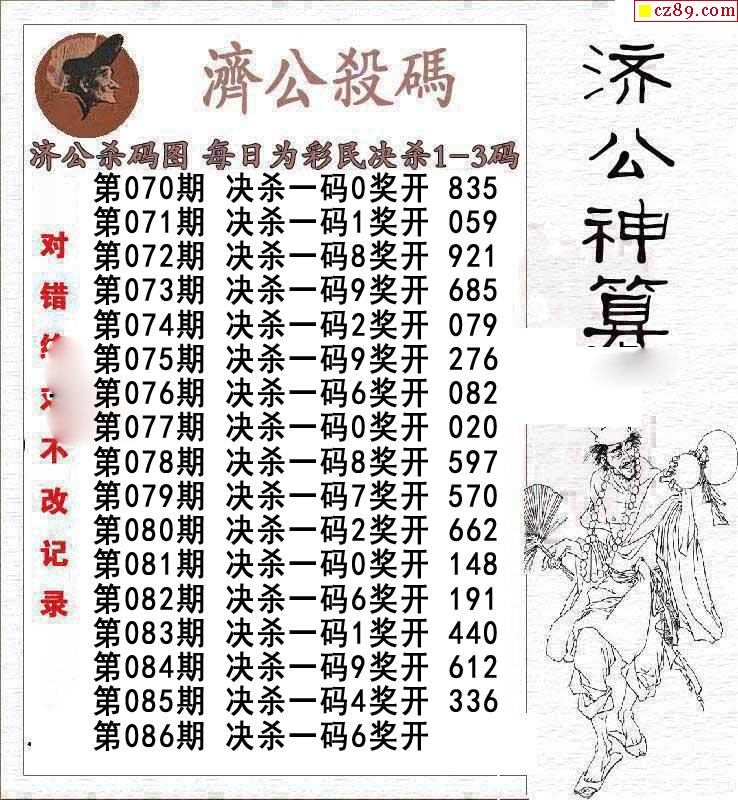 cz89.com
濟公殺碼
济公杀码图 每日为彩民决杀1-3码
第070期 决杀一码0奖开 835
第071期 决杀一码1奖开 059
第072期 决杀一码8奖开 921
第073期 决杀一码9奖开 685
第074期 决杀一码2奖开 079
第075期 决杀一码9奖开 276
第076期 决杀一码6奖开 082
第077期 决杀一码0奖开 020
第078期 决杀一码8奖开 597
第079期 决杀一码7奖开 570
第080期 决杀一码2奖开 662
第081期 决杀一码0奖开 148
第082期 决杀一码6奖开 191
第083期 决杀一码1奖开 440
第084期 决杀一码9奖开 612
第085期 决杀一码4奖开 336
第086期 决杀一码6奖开
对错
不改记录
济公神算